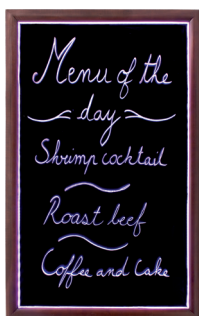 Menu of the
day
Shrimp cocktail
Roast beef
Coffee and Cake